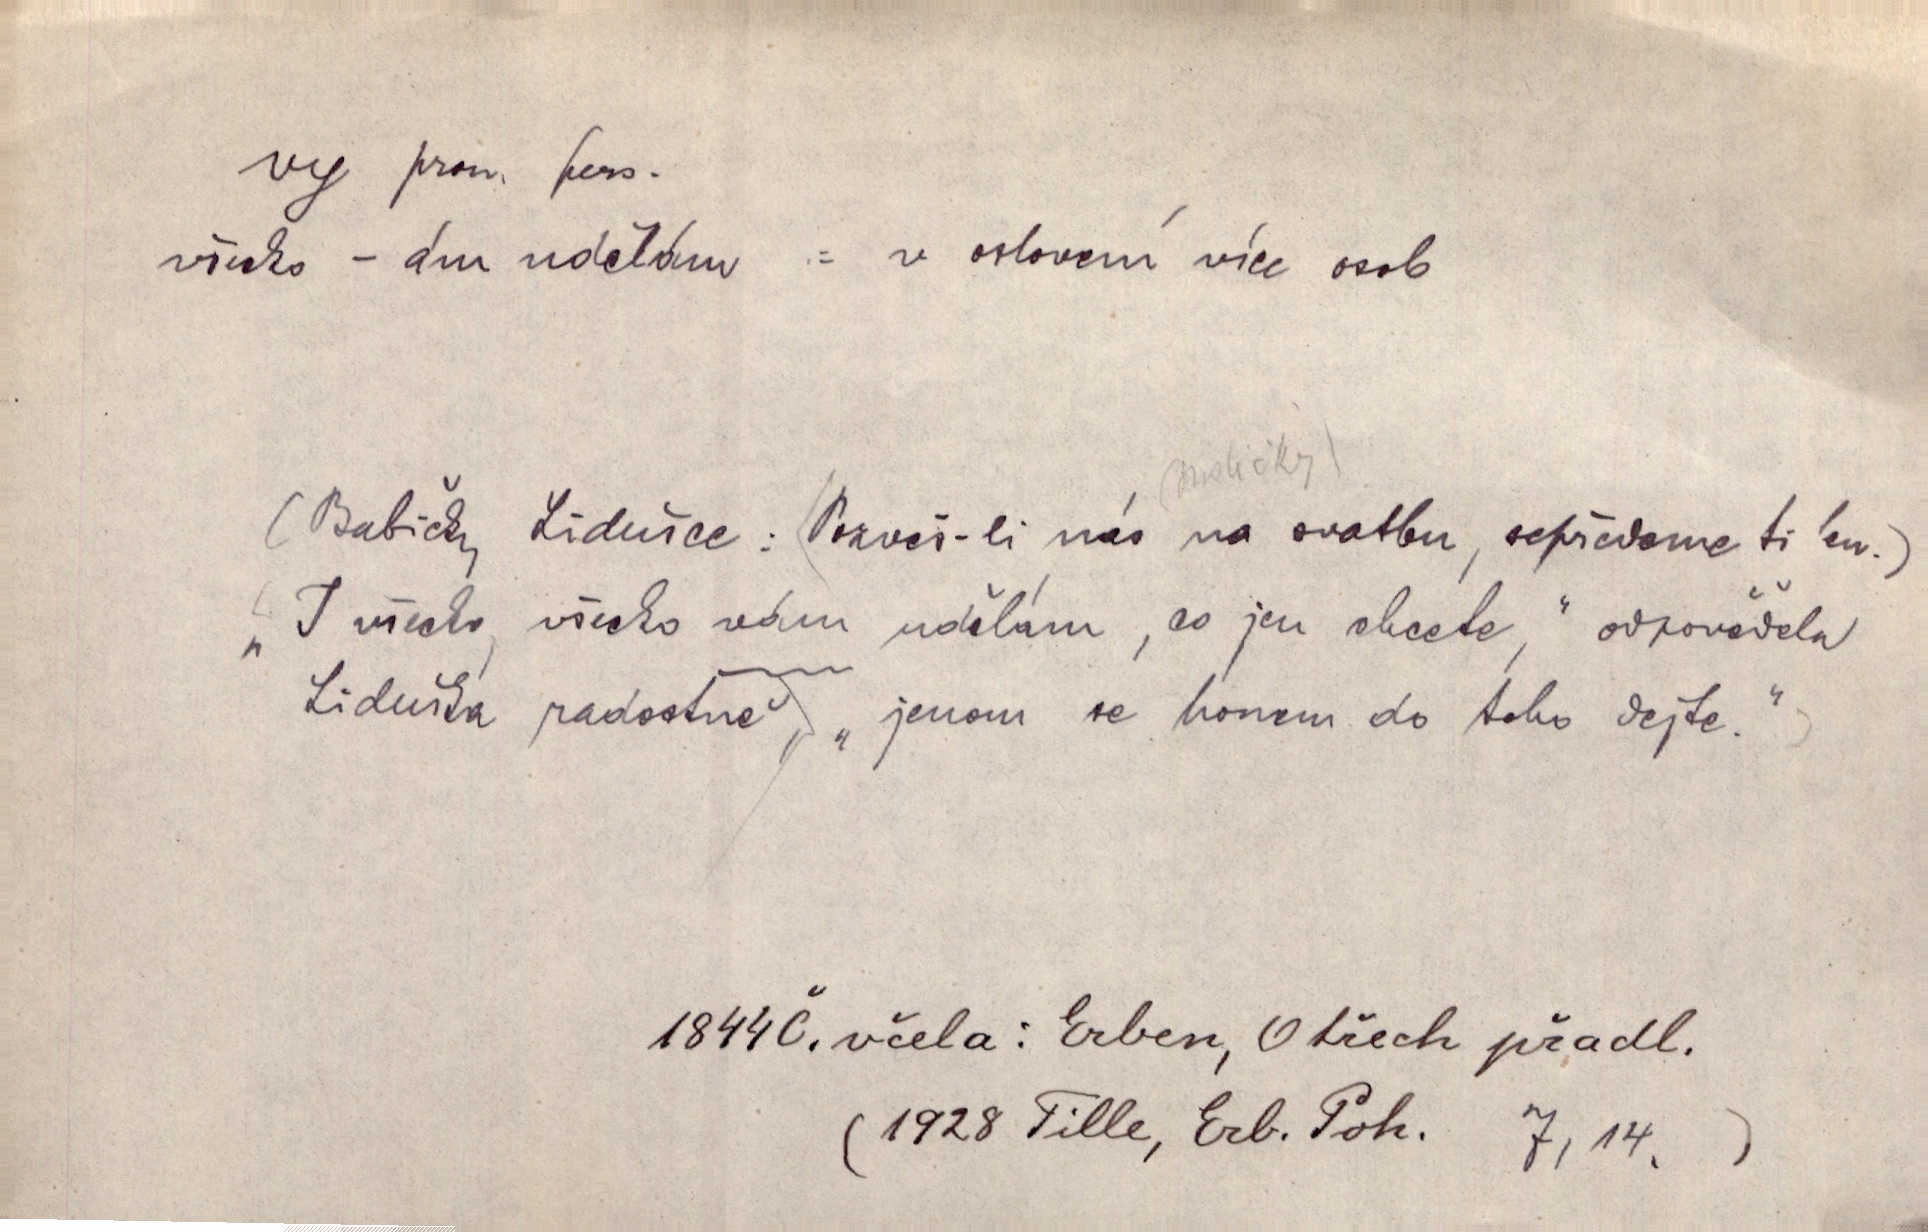 vy pron. pers.
všecko – ám udělám = v oslovení více osob
(Babičky Lidušce: (Pozveš-li nás na svatbu, sepředeme ti len.)
„I všecko, všecko vám udělám, co jen chcete,“ odpověděla
Liduška radostně, „jenom se honem do toho dejte.“)
1844 Č. včela: Erben, O třech přadl.
(1928 Tille, Erb. Poh. 7, 14.)